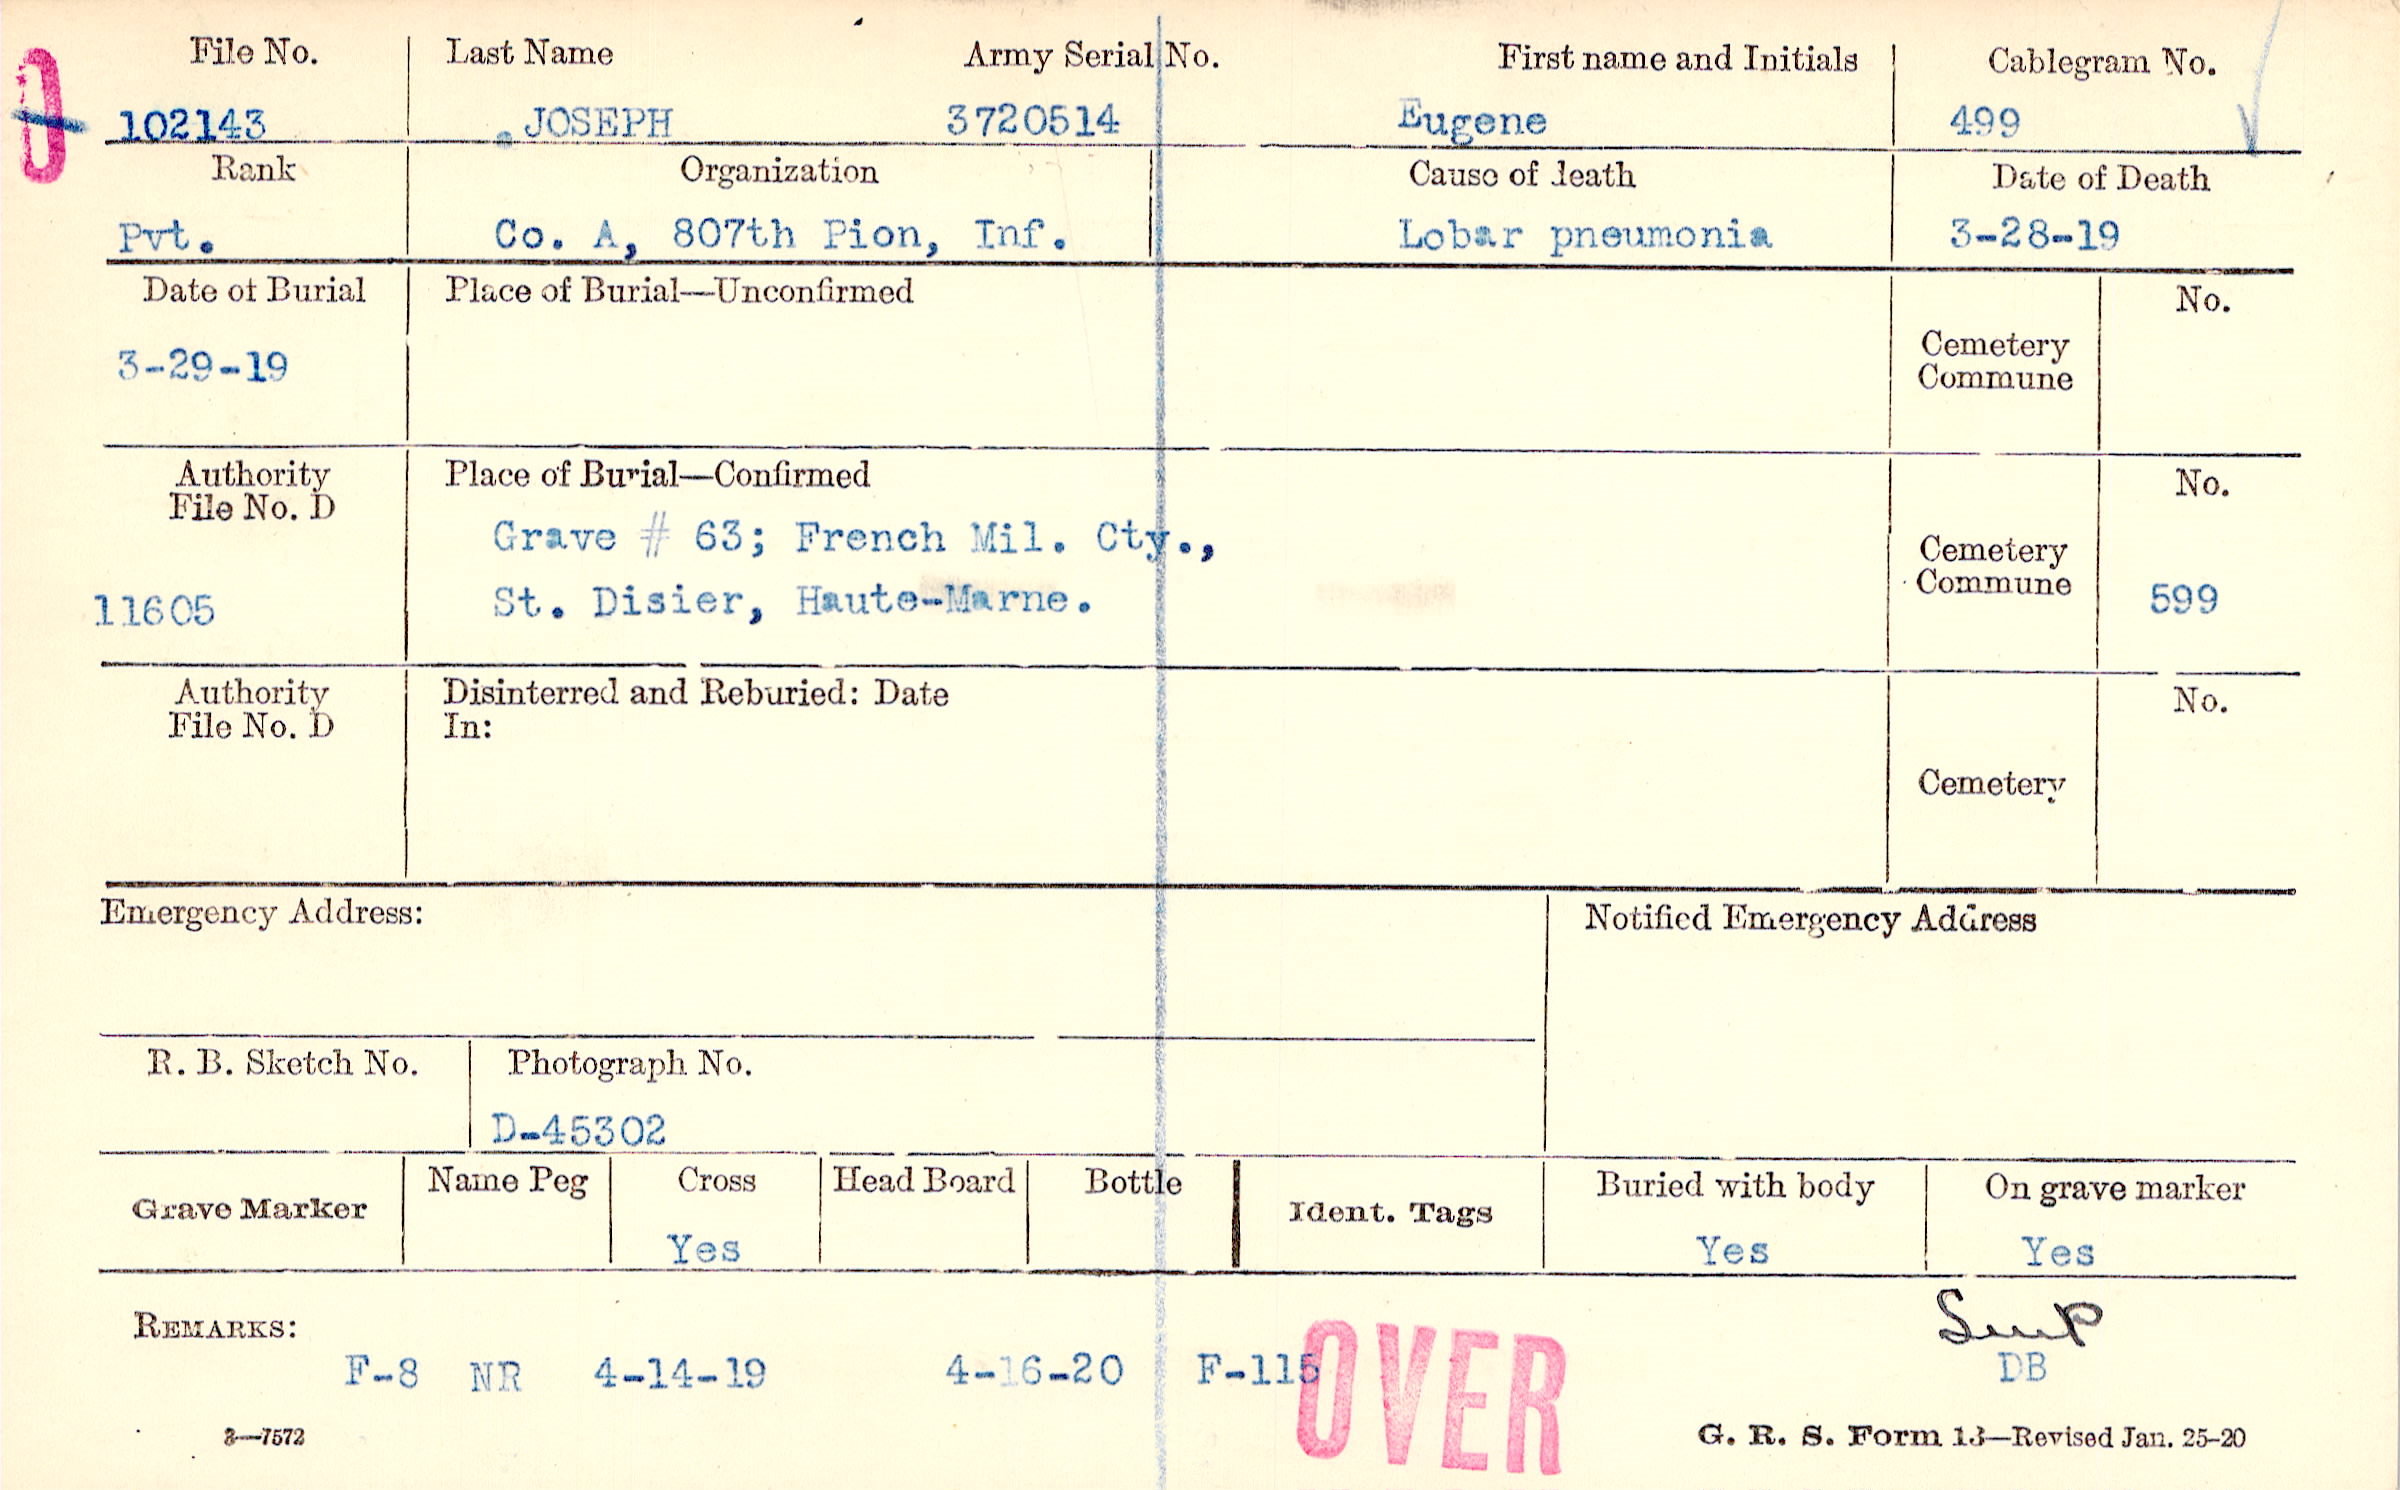 File No. Last Name Army Serial No. First name and Initials Cablegram No.
102143 JOSEPH 3720514 Eugene 499
Rank Organization Cause of death Date of Death
Pvt. Co. A, 807th Pion, Inf. Lobar pneumonia 3-28-19
Date of Burial Place of Burial—Unconfirmed No.
3-29-19
Cemetery
Commune
Authority Place of Burial—Confirmed No.
File No. D
Grave # 63; French Mil. Cty.,
Cemetery
Commune
11605 St. Disier, Haute-Marne. 599
Authority Disinterred and Reburied: Date No.
File No. D In:
Cemetery
Emergency Address: Notified Emergency Address
R. B. Sketch No. Photograph No.
D-45302
Grave Marker Name Peg Cross Head Board Bottle Ident. Tags Buried with body On grave marker
Yes Yes Yes
REMARKS:
F-8 NR 4-14-19 4-16-20 F-115 OVER DB
3—7572 G. R. S. Form 13—Revised Jan. 25-20